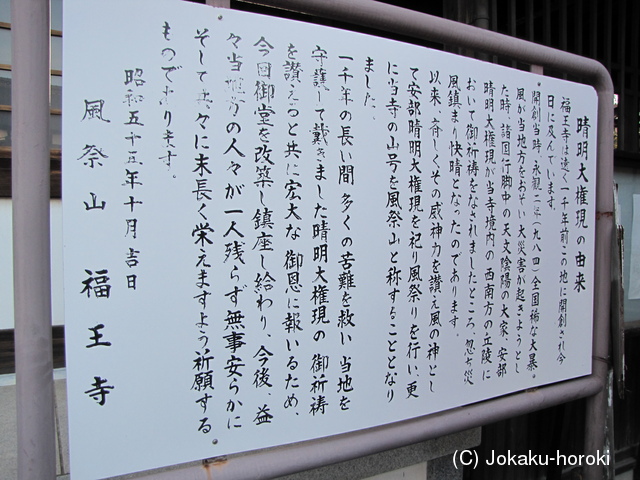 晴明大権現の由来
福王寺は遠く一千年前この地に開創され今
日に及んでいます。
開創当時、永観二年(九八四)全国稀な大暴
風が当地方をおそい大災害が起きようとし
た時、諸国行脚中の天文陰陽の大家、安部
晴明大権現が当寺境内の西南方の丘陵に
おいて御祈祷をなされましたところ、忽ち災
風鎮まり快晴となったのであります。
以来、斉しくその威神力を讃え風の神とし
て安部晴明大権現を祀り風祭りを行い、更
に当寺の山号を風祭山と称することとなり
ました。
一千年の長い間多くの苦難を救い当地を
守護して戴きました晴明大権現の御祈祷
を讃えると共に宏大な御恩に報いるため、
今回御堂を改築し鎮座し給わり、今後、益
々当地方の人々が一人残らず無事安らかに
そして共々に末長く栄えますよう祈願する
ものであります。
昭和五十三年十月吉日
風祭山 福王寺
(C) Jokaku-horoki